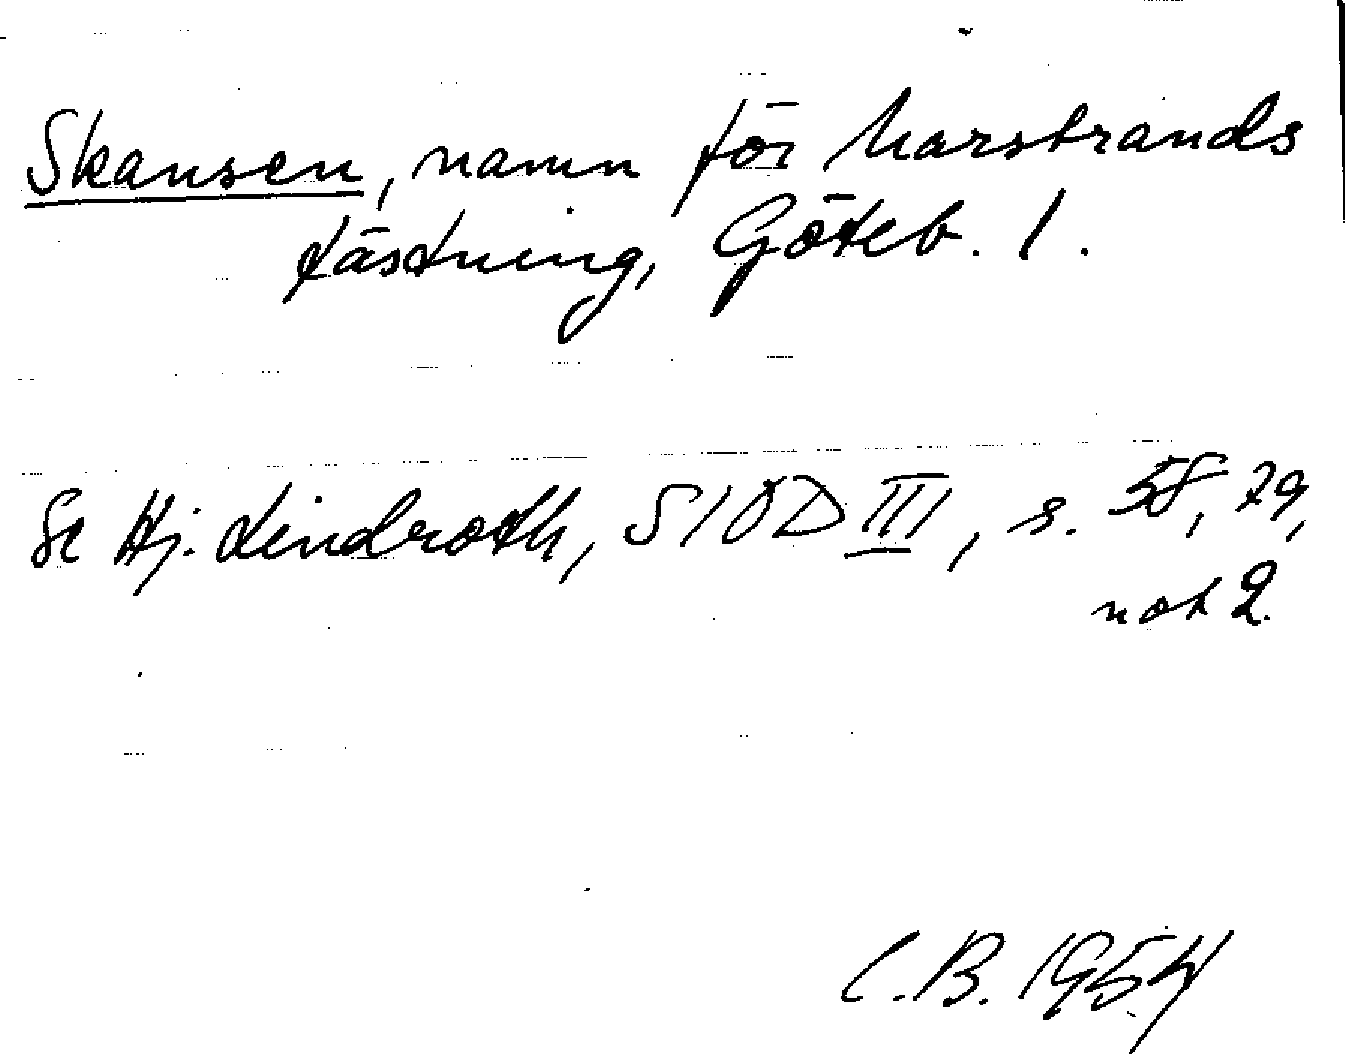 Skansen, namn för Marstrands
fästning, Göteb. l.
Se Hj. Lindroth, SIOD III, s. 58, 79,
not 2.
C.B. 1954